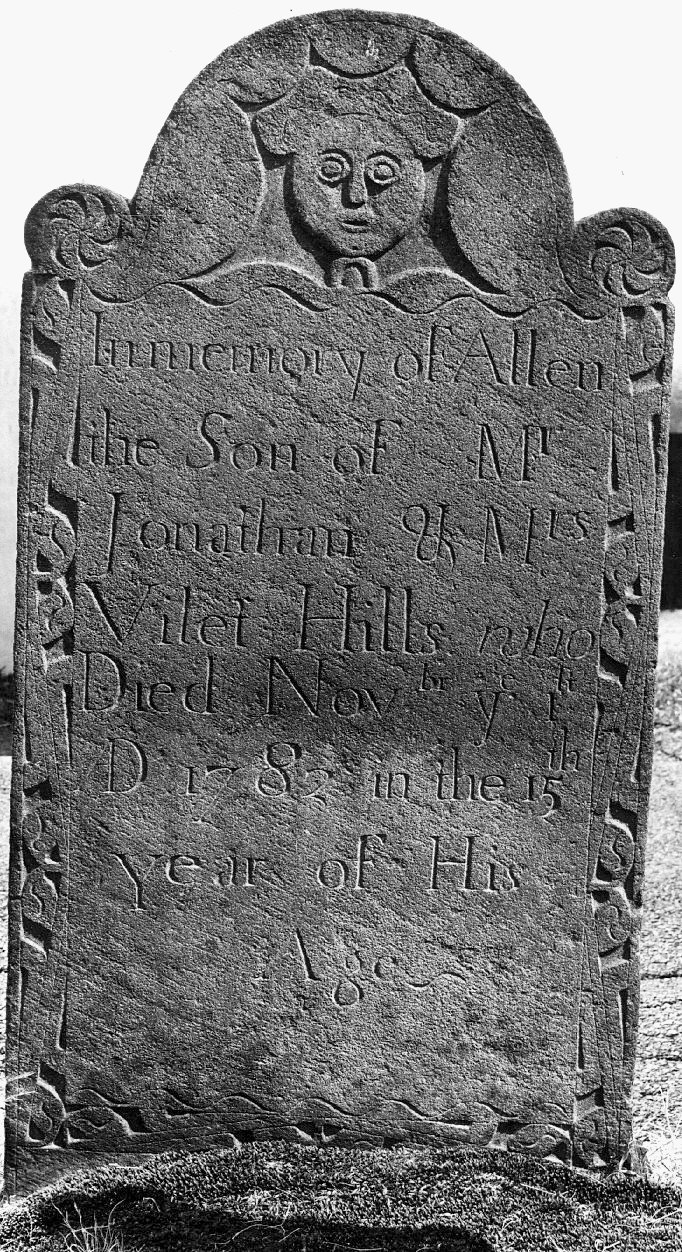 In memory of Allen
the Son of Mr
Jonathan & Mrs
Vilet Hills who
Died Novbr ye 1st
D 1782 in the 15th
year of His
Age